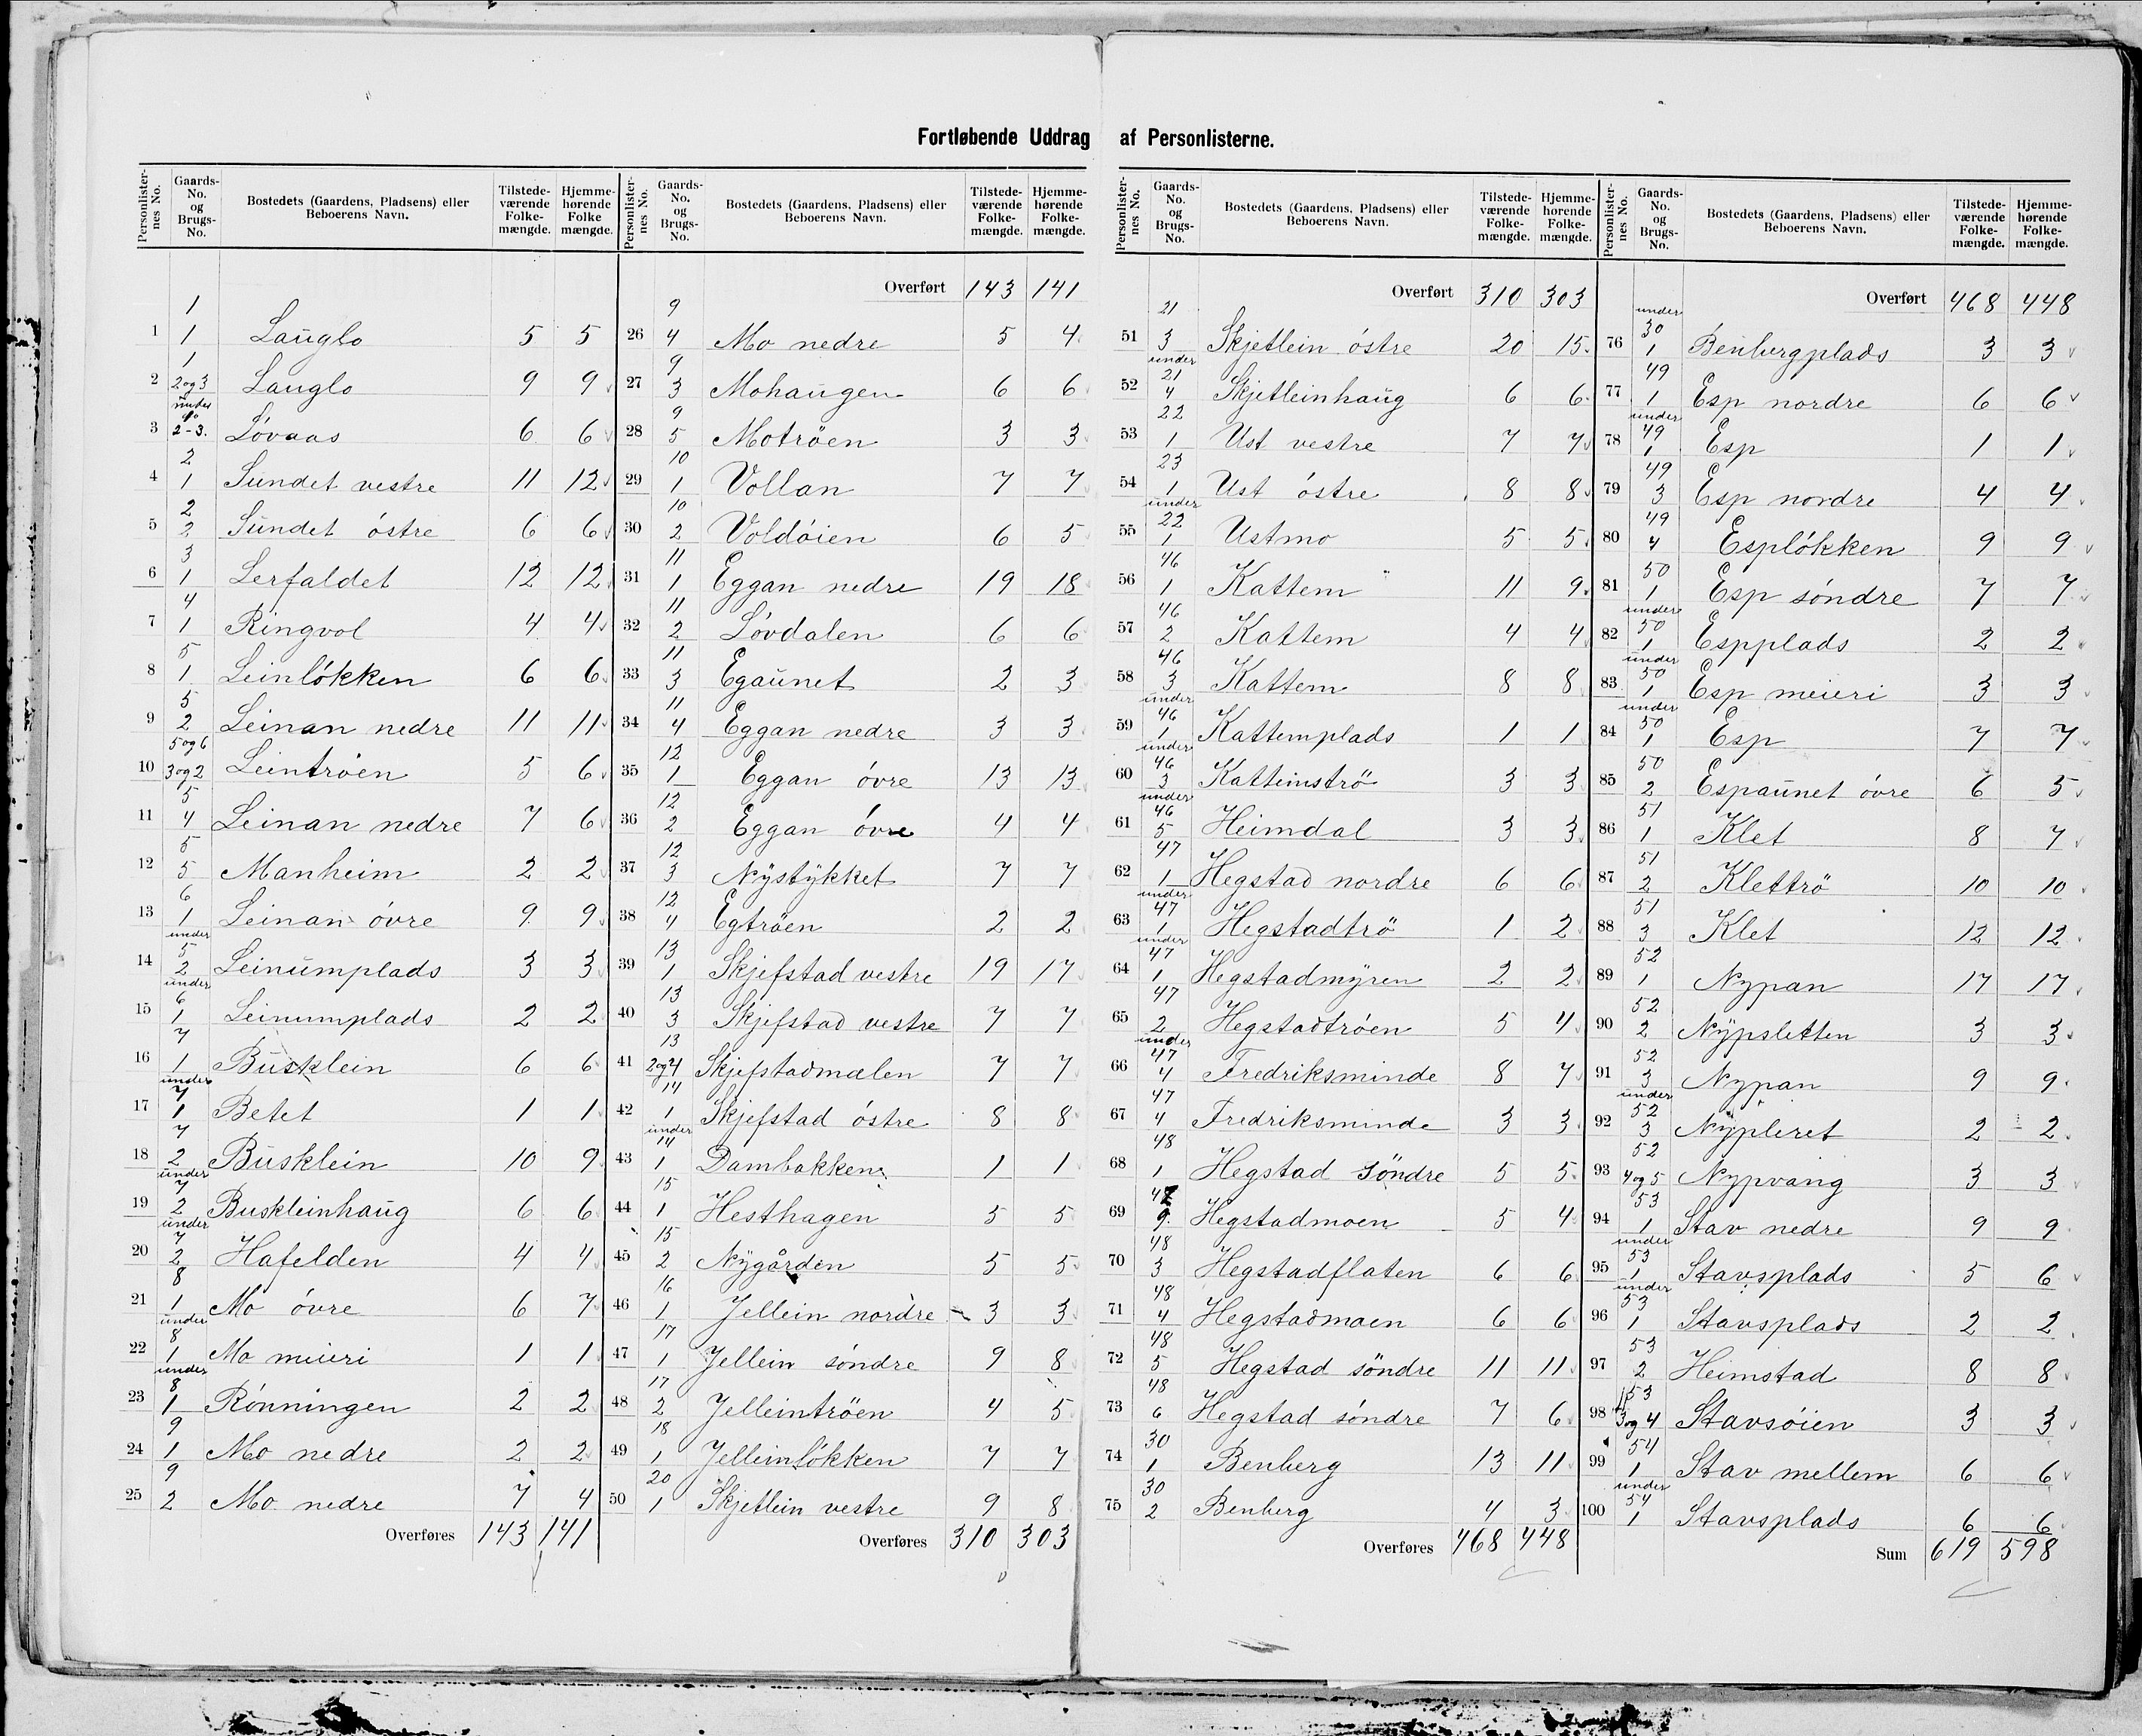 Fortløbende Uddrag af Personlisterne.
Personlister-nes No. Gaards-No. og Brugs-No. Bostedets (Gaardens, Pladsens) eller Beboerens Navn. Tilstede-værende Folke-mængde. Hjemme-hørende Folke mængde.
1 1 1 Lauglo 5 5
2 1 2 og 3 Lauglo 9 9
3 under 1 2-3. Løvaas 6 6
4 2 1 Sundet vestre 11 12
5 2 2 Sundet østre 6 6
6 3 1 Lerfaldet 12 12
7 4 1 Ringvol 4 4
8 5 1 Leinløkken 6 6
9 5 2 Leinan nedre 11 11
10 5 og 6 3 og 2 Leintrøen 5 6
11 5 4 Leinan nedre 7 6
12 5 5 Manheim 2 2
13 6 1 Leinan øvre 9 9
14 under 5 2 Leinumplads 3 3
15 under 6 1 Leinumplads 2 2
16 7 1 Busklein 6 6
17 under 7 1 Betet 1 1
18 7 2 Busklein 10 9
19 under 7 2 Buskleinhaug 6 6
20 under 7 2 Hafelden 4 4
21 8 1 Mo øvre 6 7
22 under 8 1 Mo meieri 1 1
23 under 8 1 Rønningen 2 2
24 9 1 Mo nedre 2 2
25 9 2 Mo nedre 7 4
Overføres 143 141
Personlister-nes No. Gaards-No. og Brugs-No. Bostedets (Gaardens, Pladsens) eller Beboerens Navn. Tilstede-værende Folke-mængde. Hjemme-hørende Folke-mængde.
Overført 143 141
26 9 4 Mo nedre 5 4
27 9 3 Mohaugen 6 6
28 9 5 Motrøen 3 3
29 10 1 Vollan 7 7
30 10 2 Voldøien 6 5
31 11 1 Eggan nedre 19 18
32 11 2 Løvdalen 6 6
33 11 3 Egaunet 2 3
34 11 4 Eggan nedre 3 3
35 12 1 Eggan øvre 13 13
36 12 2 Eggan øvre 4 4
37 12 3 Nystykket 7 7
38 12 4 Egtrøen 2 2
39 13 1 Skjefstad vestre 19 17
40 13 3 Skjefstad vestre 7 7
41 13 2 og 4 Skjefstadmælen 7 7
42 14 1 Skjefstad østre 8 8
43 under 14 1 Dambakken 1 1
44 15 1 Hesthagen 5 5
45 15 2 Nygården 5 5
46 16 1 Jellein nordre 3 3
47 17 1 Jellein søndre 9 8
48 17 2 Jelleintrøen 4 5
49 18 1 Jelleinløkken 7 7
50 20 1 Skjetlein vestre 9 8
Overføres 310 303
Personlister-nes No. Gaards-No. og Brugs-No. Bostedets (Gaardens, Pladsens) eller Beboerens Navn. Tilstede-værende Folke-mængde. Hjemme-hørende Folke-mængde.
Overført 310 303
51 21 3 Skjetlein østre 20 15.
52 under 21 4 Skjetleinhaug 6 6
53 22 1 Ust vestre 7 7
54 23 1 Ust østre 8 8
55 under 22 1 Ustmo 5 5
56 46 1 Kattem 11 9
57 46 2 Kattem 4 4
58 46 3 Kattem 8 8
59 under 46 1 Kattemplads 1 1
60 under 46 3 Kattemstrø 3 3
61 under 46 5 Heimdal 3 3
62 47 1 Hegstad nordre 6 6
63 under 47 1 Hegstadtrø 1 2
64 under 47 1 Hegstadmyren 2 2
65 47 2 Hegstadtrøen 5 4
66 under 47 4 Fredriksminde 8 7
67 47 4 Fredriksminde 3 3
68 48 1 Hegstad søndre 5 5
69 47 9. Hegstadmoen 5 4
70 48 3 Hegstadflaten 6 6
71 48 4 Hegstadmoen 6 6
72 48 5 Hegstad søndre 11 11
73 48 6 Hegstad søndre 7 6
74 30 1 Benberg 13 11
75 30 2 Benberg 4 3
Overføres 468 448
Personlister-nes No. Gaards-No. og Brugs-No. Bostedets (Gaardens, Pladsens) eller Beboerens Navn. Tilstede-værende Folke-mængde. Hjemme-hørende Folke-mængde.
Overført 468 448
76 under 30 1 Benbergplads 3 3
77 49 1 Esp nordre 6 6
78 under 49 1 Esp 1 1
79 49 3 Esp nordre 4 4
80 49 4 Espløkken 9 9
81 50 1 Esp søndre 7 7
82 under 50 1 Espplads 2 2
83 under 50 1 Esp meieri 3 3
84 under 50 1 Esp 7 7
85 50 2 Espaunet øvre 6 5
86 51 1 Klet 8 7
87 51 2 Klettrø 10 10
88 51 3 Klet 12 12
89 52 1 Nypan 17 17
90 52 2 Nypsletten 3 3
91 52 3 Nypan 9 9
92 under 52 3 Nypleret 2 2
93 52 4 og 5 Nypvang 3 3
94 53 1 Stav nedre 9 9
95 under 53 1 Stavsplads 5 6
96 under 53 1 Stavsplads 2 2
97 53 2 Heimstad 8 8
98 53 3 og 4 Stavsøien 3 3
99 54 1 Stav mellem 6 6
100 under 54 1 Stavsplads 6 6
Sum 619 598